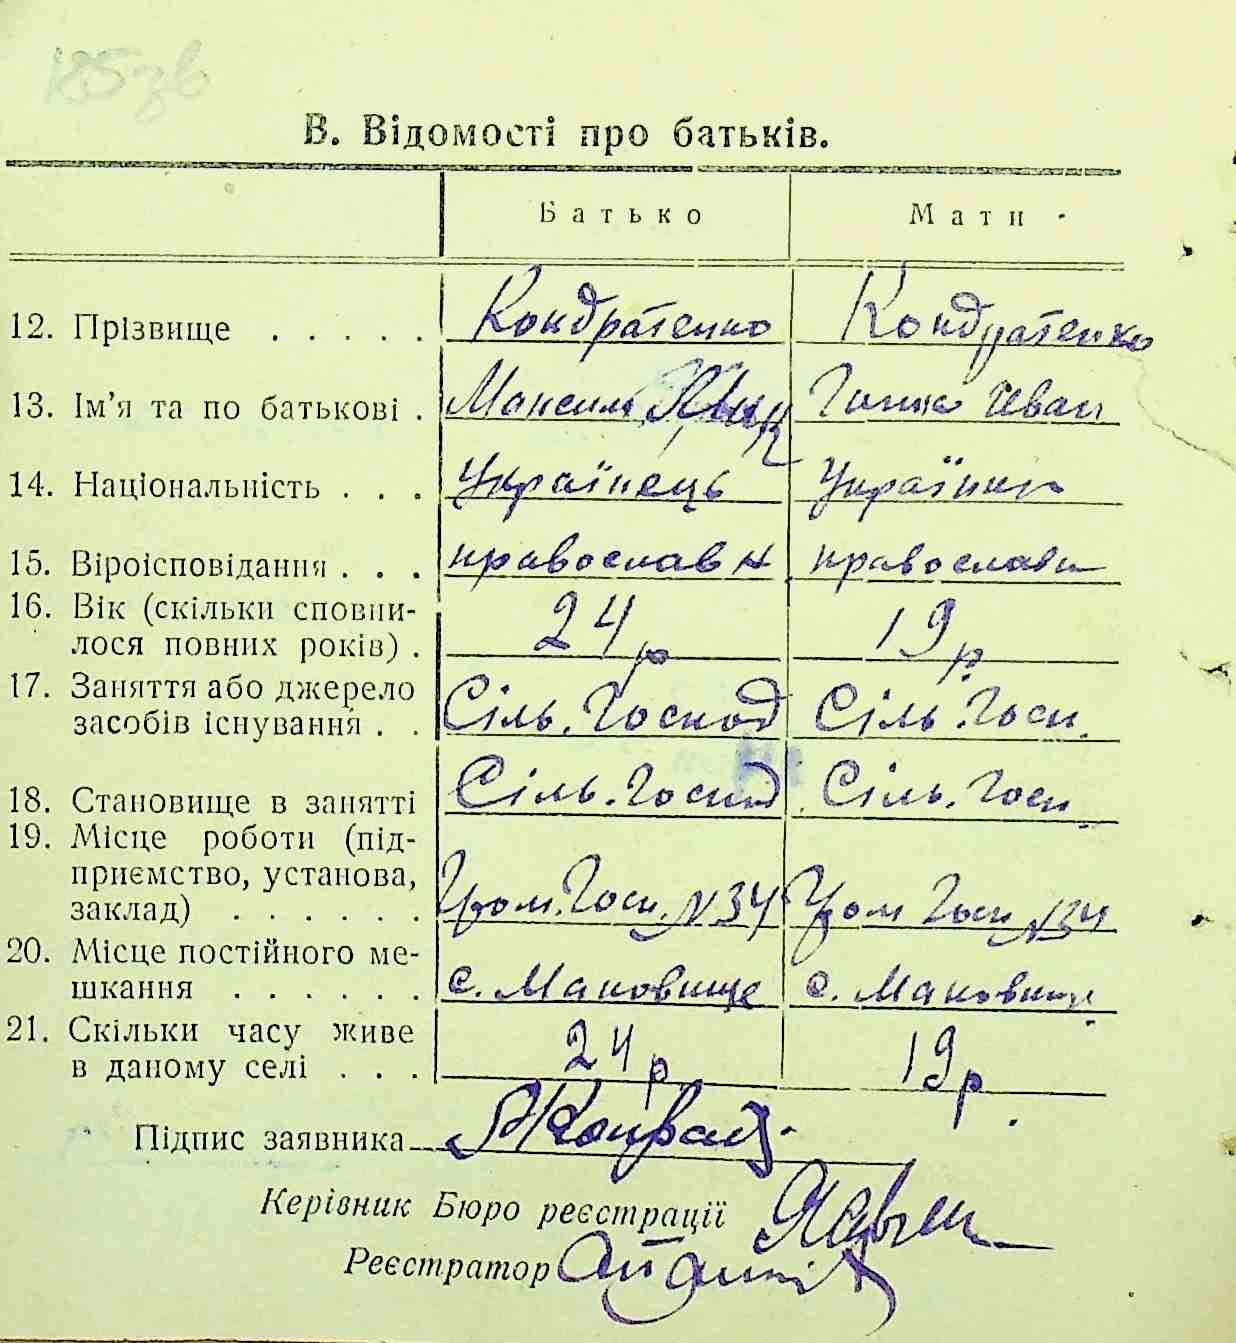 185зв
В. Відомості про батьків.
Батько Мати
12. Прізвище . . . . . Кондратенко Кондратенко
13. Ім’я та по батькові . Максим Іван
14. Національність . . . Українець Українка
15. Віроісповідання . . . православн православн
16. Вік (скільки сповни-
лося повних років) . 24 р 19 р.
17. Заняття або джерело
засобів існування . . Сіль. Господ Сіль. Госп.
18. Становище в занятті Сіль. Господ Сіль. Госп.
19. Місце роботи (під-
приємство, установа,
заклад) . . . . . . Гром. Госп. №34 Гром Госп №34
20. Місце постійного ме-
шкання . . . . . . с. Маковище с. Маковище
21. Скільки часу живе
в даному селі . . . 24 р 19 р.
Підпис заявника
Керівник Бюро реєстрації
Реєстратор